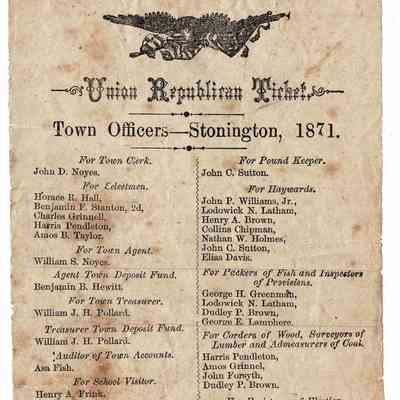 Union Republican Ticket.
Town Officers—Stonington, 1871.
For Town Clerk.
John D. Noyes.
For Selectmen.
Horace R. Hall,
Benjamin F. Stanton, 2d,
Charles Grinnell,
Harris Pendleton,
Amos B. Taylor.
For Town Agent.
William S. Noyes.
Agent Town Deposit Fund.
Benjamin B. Hewitt.
For Town Treasurer.
William J. H. Pollard.
Treasurer Town Deposit Fund.
William J. H. Pollard.
Auditor of Town Accounts.
Asa Fish.
For School Visitor.
Henry A. Frink.
For Pound Keeper.
John C. Sutton.
For Haywards.
John P. Williams, Jr.,
Lodowick N. Latham,
Henry A. Brown,
Collins Chipman,
Nathan W. Holmes,
John C. Sutton,
Elias Davis.
For Packers of Fish and Inspectors
of Provisions.
George H. Greenman,
Lodowick N. Latham,
Dudley P. Brown,
George E. Lamphere.
For Corders of Wood, Surveyors of
Lumber and Admeasurers of Coal.
Harris Pendleton,
Amos Grinnel,
John Forsyth,
Dudley P. Brown.